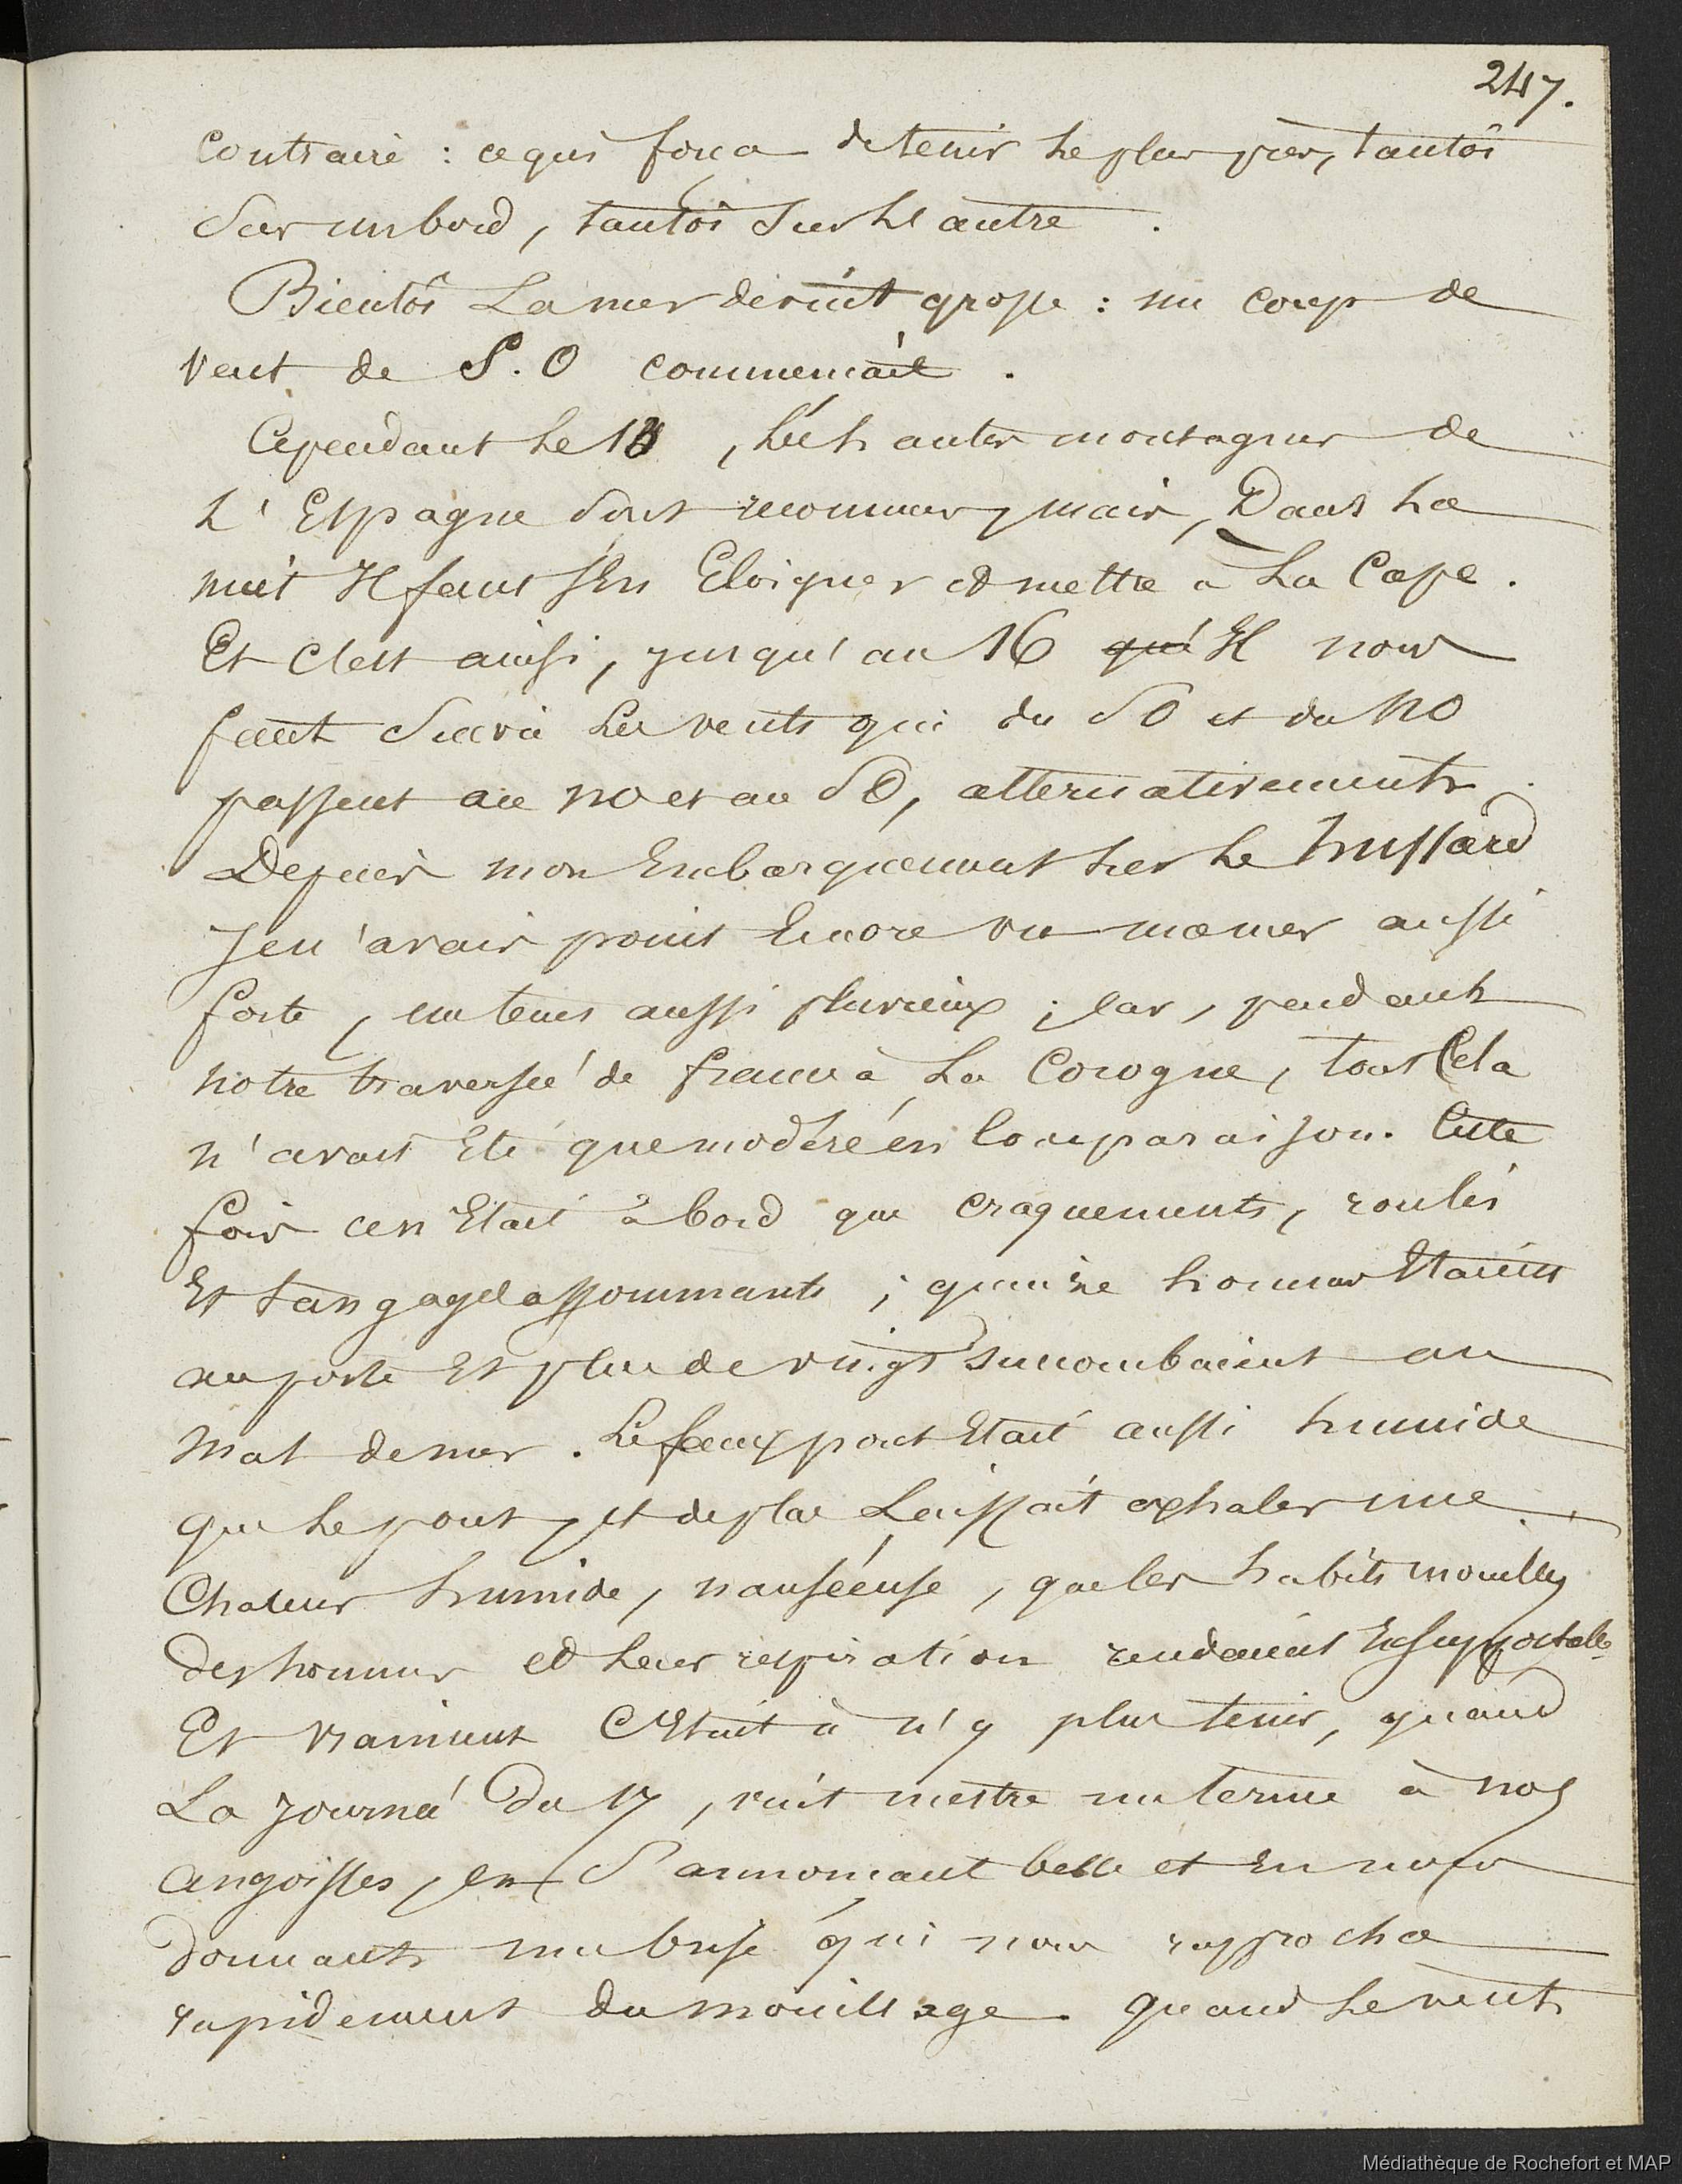 247.
contraire : ce qui força de tenir le plus près, tantôt
sur un bord, tantôt sur l'autre.
Bientôt la mer devint grosse : un coup de
vent de S.O commençait.
Cependant le 13, les hautes montagnes de
l'Espagne sont reconnues, mais, dans la
nuit Il faut s'en Eloigner et mettre à la Cape.
Et c'est ainsi, jusqu'au 16 qu'Il nous
faut suivre les vents qui du SO et du NO
passent au NO et au SO, alternativement.
Depuis mon Embarquement sur le hussard
Je n'avais point Encore vu ma mer aussi
forte, un tems aussi pluvieux ; car, pendant
notre traversée de france à La Corogne, tout Cela
n'avait Eté que modéré en Comparaison. Cette
fois ce n'Etait à bord que craquements, roulis
Et tangages assommants ; quinze hommes Etaient
au poste Et plus de vingt succombaient au
mal de mer. Le faux pont Etait aussi humide
que le pont, et de plus Laissait exhaler une
Chaleur humide, nauséeuse, que les habits mouillés
des hommes et leur respiration rendaient Insupportable
Et vraiment C'Etait à n'y plus tenir, quand
La Journée du 17, vint mettre un terme à nos
angoisses, en s'annonçant belle et En nous
donnant une brise qui nous rapprocha
rapidement du mouillage. quand le vent
Médiathèque de Rochefort et MAP